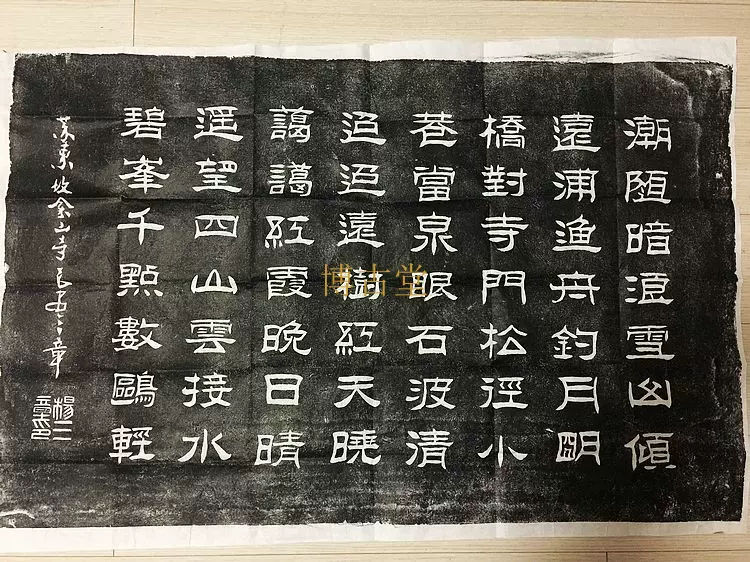 潮隨暗浪雪山傾
遠浦漁舟釣月明
橋對寺門松徑小
巷當泉眼石波清
迢迢遠樹紅天曉
藹藹紅霞晚日晴
遥望四山雲接水
碧峯千點數鷗輕
蘇東坡金山寺 章
博古堂